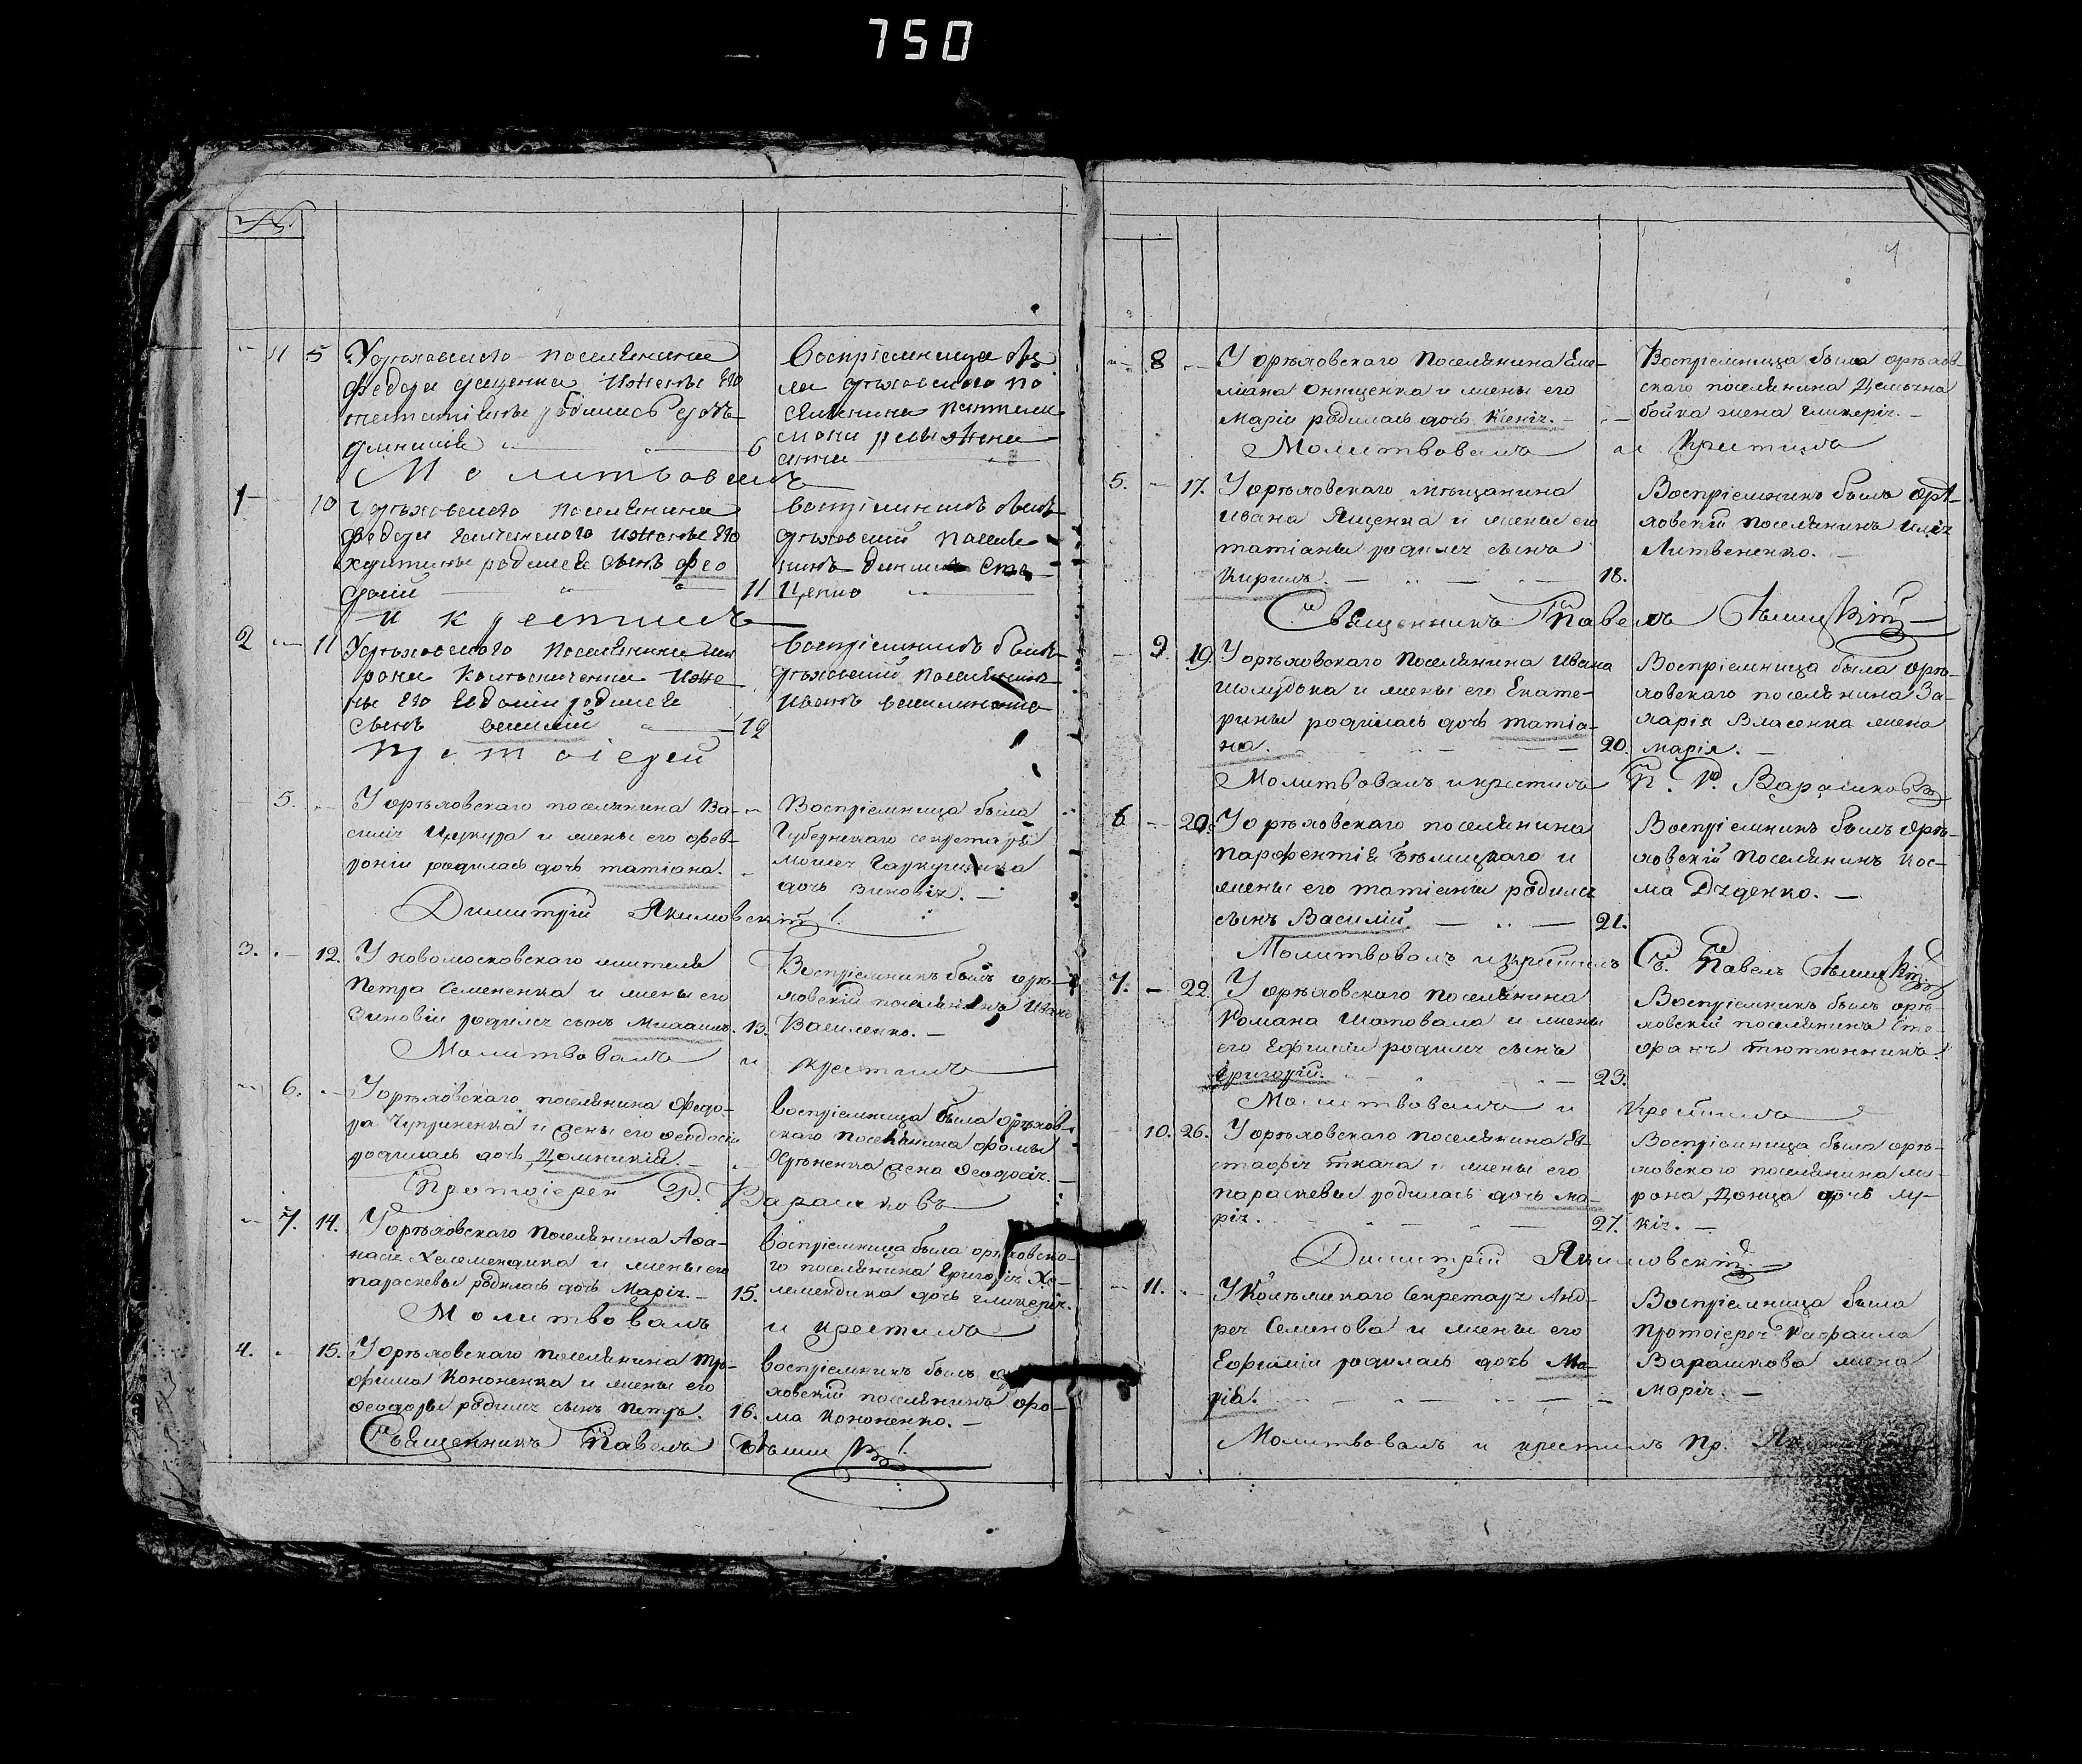 750
№
4 5 Уорѣховского поселянина
Федора ищенка ижены его
родилась дочь
6
Воспріемница бы
ла орѣховского по
селянина пантели
мона жена
Молитвовалъ
1 10 Уорѣховского поселянина
Федора ижены его
христины родился сынъ Фео
11
воспріемникъ былъ
орѣховский поселя
нинъ
и крестилъ
2 11 Уорѣховского поселянина
иже
ны его Евдокии родился
сынъ василій 12
воспріемникъ былъ
орѣховский поселянинъ
иванъ василенко
протоіерей
5. У орѣховскаго поселянина Ва-
силія Цукура и жены его Фев-
роніи родилась дочь татіана.
Воспріемница была
Губернскаго секретаря
моисея Гаркушенка
дочь зиновія. —
Димитрій Якимовскій
3. 12. У новомосковскаго жителя
Петра Семененка и жены его
Зиновіи родился сынъ Михаилъ. 13.
Воспріемникъ былъ орѣ-
ховскій поселянинъ Иванъ
Василенко. —
Молитвовалъ и крестилъ
6. У орѣховскаго поселянина Федо-
ра Чуприненка и жены его Феодосіи
родилась дочь Домникія. —
воспріемница была орѣхов-
скаго поселянина Фомы
жена Феодосія. —
Протоіерей Р. Варашковъ
7. 14. У орѣховскаго поселянина Афа-
насія Хелемендика и жены его
параскевы родилась дочь Марія. — 15.
воспріемница была орѣховска-
го поселянина Григорія Хе-
лемендика дочь гликерія.
Молитвовалъ и крестилъ
4. 15. У орѣховскаго поселянина Тро-
фима Кононенка и жены его
Феодоры родился сынъ Петръ. 16.
воспріемникъ былъ орѣ-
ховскій поселянинъ Фо-
ма Кононенко. —
Священникъ Павелъ
4
8 У орѣховскаго поселянина Еме-
ліана Онищенка и жены его
Маріи родилась дочь Ксенія. —
Воспріемница была орѣхов-
скаго поселянина Демьяна
бойка жена гликерія. —
Молитвовалъ и Крестилъ
5. 17. У орѣховскаго мѣщанина
Ивана Ященка и жены его
татіаны родился сынъ
Кирилъ. — 18.
Воспріемникъ былъ орѣ-
ховскій поселянинъ Илія
Литвененко.
Священникъ Павелъ
9. 19. У орѣховскаго поселянина Ивана
Шолудька и жены его Екате-
рины родилась дочь татіа-
на. 20.
Воспріемница была орѣ-
ховскаго поселянина За-
харія Власенка жена
марія. —
Молитвовалъ и крестилъ П. Р. Варашковъ
6 20. У орѣховскаго поселянина
Парфентія Бѣлицкаго и
жены его татіаны родился
сынъ Василій. — 21.
Воспріемникъ былъ орѣ-
ховскій поселянинъ Кос-
ма Дѣденко. —
Молитвовалъ и крестилъ Св. Павелъ
7. 22. У орѣховскаго поселянина
Романа Шаповала и жены
его Ефиміи родился сынъ
Григорій. 23.
Воспріемникъ былъ орѣ-
ховскій поселянинъ Сте-
фанъ тютюнникъ.
Молитвовалъ и крестилъ
10. 26. У орѣховскаго поселянина Ев-
стафія ткача и жены его
параскевы родилась дочь ма-
рія. 27.
Воспріемница была орѣ-
ховскаго поселянина ми-
рона Донца дочь лу-
кія. —
Димитрій Якимовскій
11. У Колѣжскаго Секретаря Анд-
рея Семенова и жены его
Ефиміи родилась дочь Ма-
рія.
Воспріемница была
протоіерея Рафаила
Варашкова жена
марія. —
Молитвовалъ и крестилъ Пр.